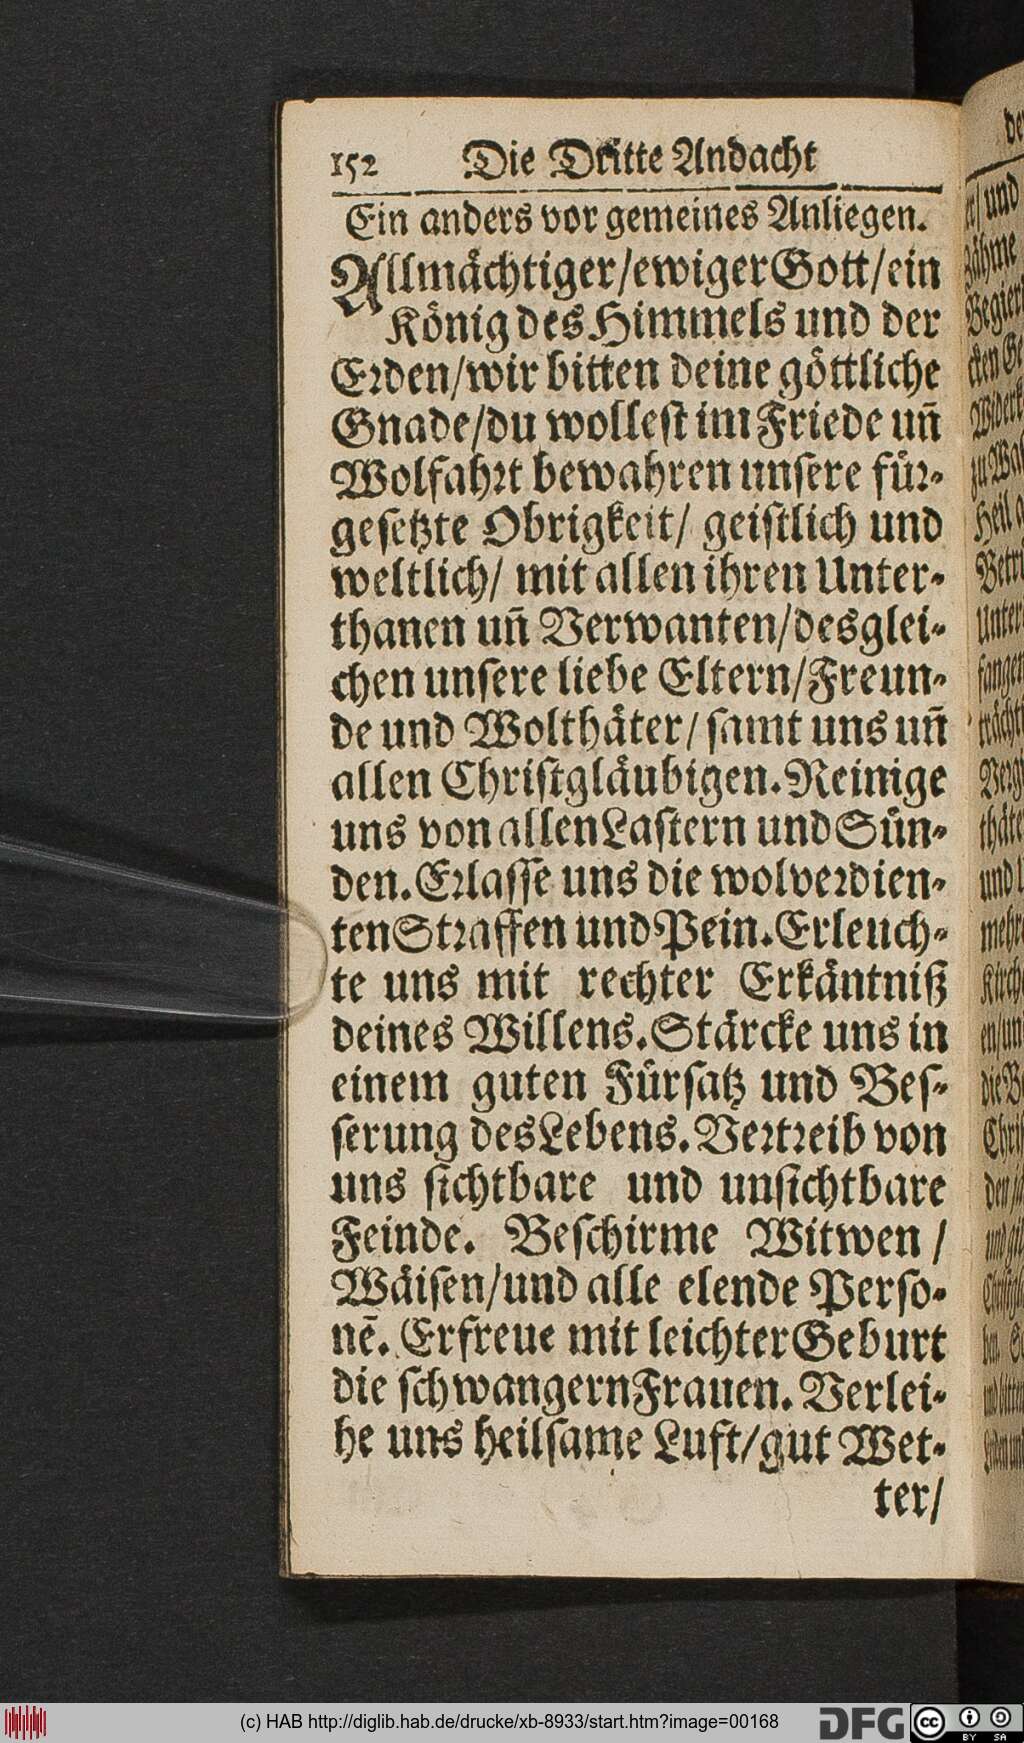 152 Die Dritte Andacht
Ein anders vor gemeines Anliegen.
Allmächtiger/ewiger Gott/ein
König des Himmels und der
Erden/wir bitten deine göttliche
Gnade/du wollest im Friede uñ
Wolfahrt bewahren unsere für-
gesetzte Obrigkeit/ geistlich und
weltlich/ mit allen ihren Unter-
thanen uñ Verwanten/desglei-
chen unsere liebe Eltern/Freun-
de und Wolthäter/ samt uns uñ
allen Christgläubigen. Reinige
uns von allen Lastern und Sün-
den. Erlasse uns die wolverdien-
ten Straffen und Pein. Erleuch-
te uns mit rechter Erkäntniß
deines Willens. Stärcke uns in
einem guten Fürsatz und Bes-
serung des Lebens. Vertreib von
uns sichtbare und unsichtbare
Feinde. Beschirme Witwen /
Wäisen/und alle elende Perso-
nē. Erfreue mit leichter Geburt
die schwangern Frauen. Verlei-
he uns heilsame Luft/gut Wet-
ter/
(c) HAB http://diglib.hab.de/drucke/xb-8933/start.htm?image=00168
DFG cc BY SA